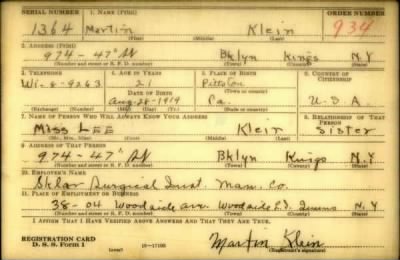 SERIAL NUMBER 1. NAME (Print) ORDER NUMBER
1364 Martin Klein 934
(First) (Middle) (Last)
2. ADDRESS (Print)
974 - 47th St Bklyn Kings N.Y
(Number and street or R. F. D. number) (Town) (County) (State)
3. TELEPHONE 4. AGE IN YEARS 5. PLACE OF BIRTH 6. COUNTRY OF CITIZENSHIP
Wi-8-9263 21 Pittston
DATE OF BIRTH (Town or county)
Aug-28-1919 Pa. U.S.A
(Exchange) (Number) (Mo.) (Day) (Yr.) (State or country)
7. NAME OF PERSON WHO WILL ALWAYS KNOW YOUR ADDRESS 8. RELATIONSHIP OF THAT PERSON
Miss LEE Klein Sister
(Mr., Mrs., Miss) (First) (Middle) (Last)
9. ADDRESS OF THAT PERSON
974 - 47th St Bklyn Kings N.Y
(Number and street or R. F. D. number) (Town) (County) (State)
10. EMPLOYER'S NAME
Sklar Surgical Inst. Man. Co.
11. PLACE OF EMPLOYMENT OR BUSINESS
38-04 Woodside Ave. Woodside L.I. Queens N.Y
(Number and street or R. F. D. number) (Town) (County) (State)
I AFFIRM THAT I HAVE VERIFIED ABOVE ANSWERS AND THAT THEY ARE TRUE.
REGISTRATION CARD
D. S. S. Form 1 (over) 16-17105 Martin Klein
(Registrant's signature)